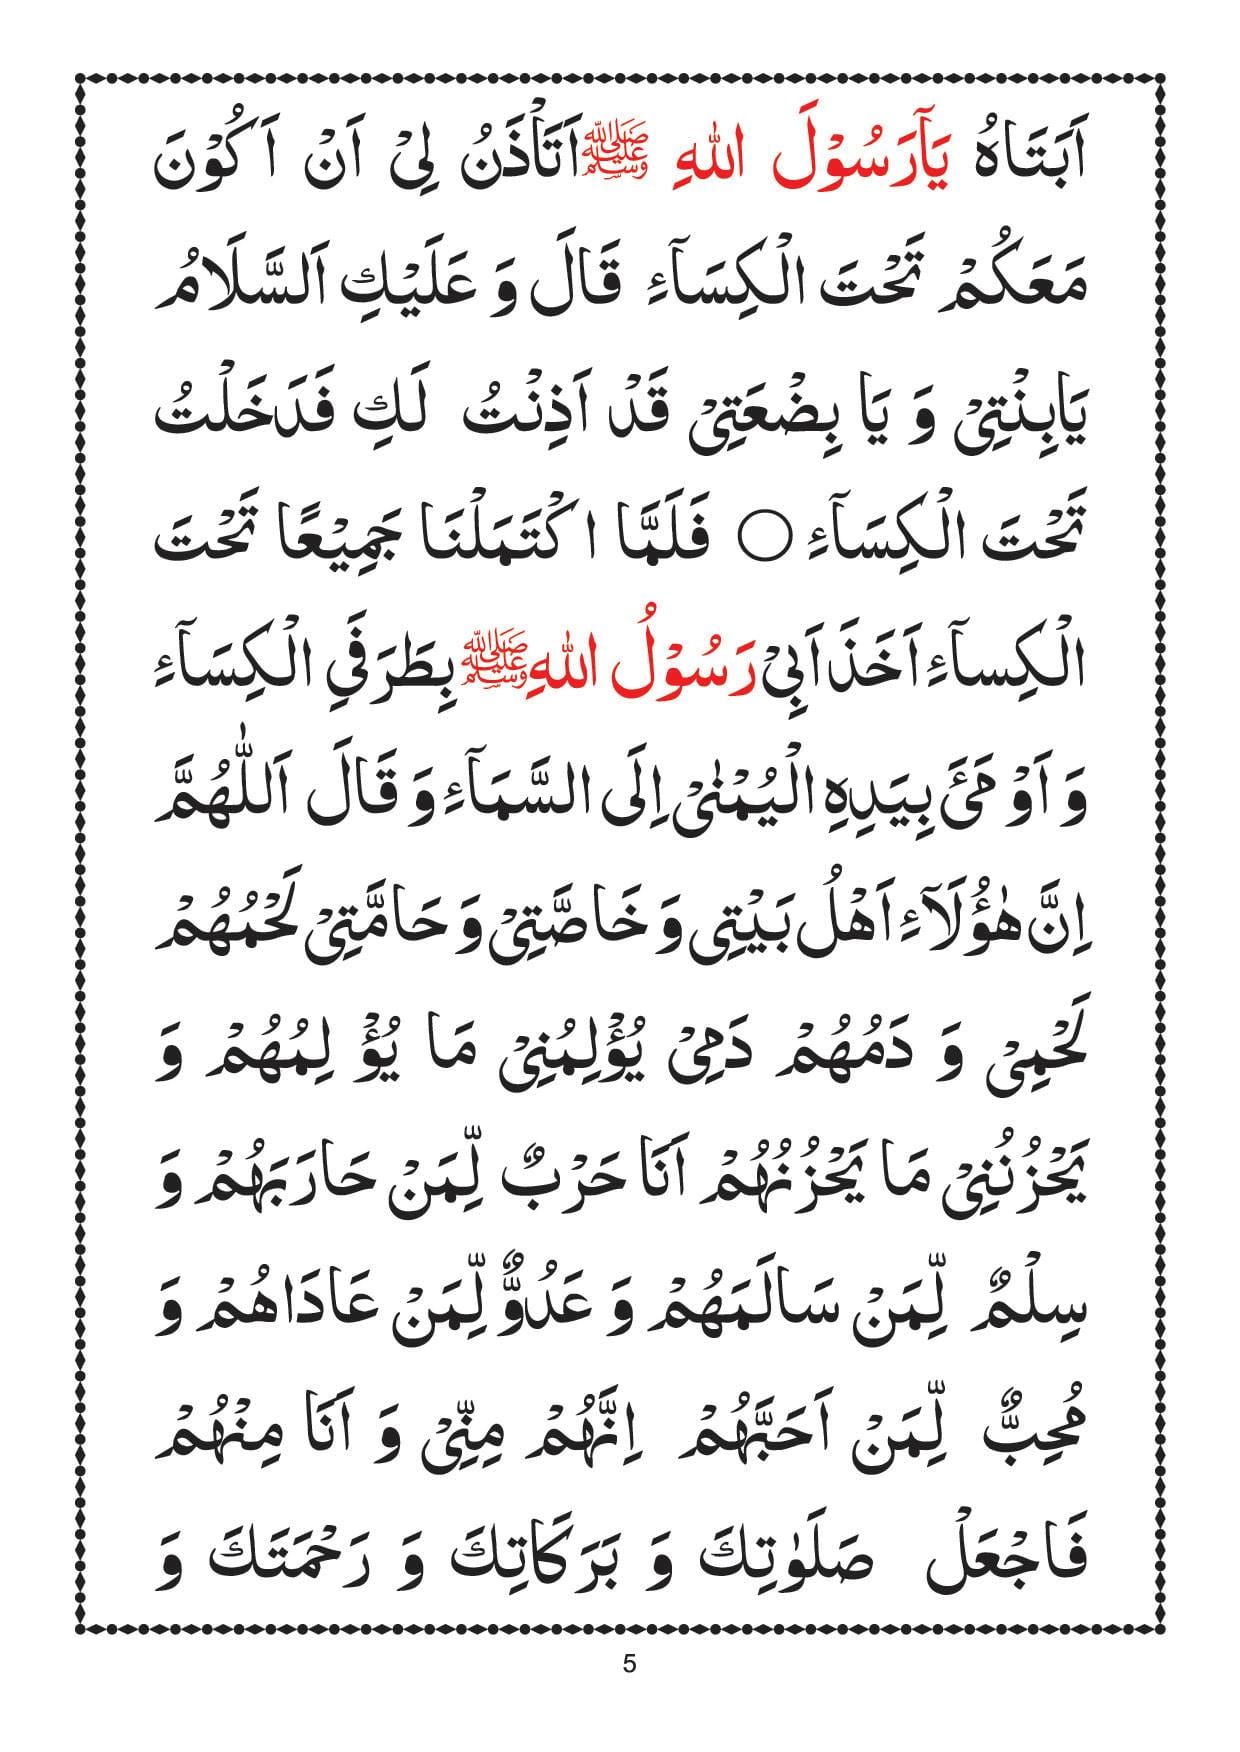 اَبَتَاهُ يَآرَسُوْلَ اللهِ ﷺ اَتَاْذَنُ لِیْ اَنْ اَكُوْنَ
مَعَكُمْ تَحْتَ الْكِسَآءِ قَالَ وَ عَلَيْكِ اَلسَّلَامُ
يَابِنْتِیْ وَ يَا بِضْعَتِیْ قَدْ اَذِنْتُ لَكِ فَدَخَلْتُ
تَحْتَ الْكِسَآءِ ○ فَلَمَّا اكْتَمَلْنَا جَمِيْعًا تَحْتَ
الْكِسآءِ اَخَذَ اَبِیْ رَسُوْلُ اللهِ ﷺ بِطَرَفَیِ الْكِسَآءِ
وَ اَوْمَیَٔ بِيَدِهِ الْيُمْنٰیْ اِلَی السَّمَآءِ وَ قَالَ اَللّٰهُمَّ
اِنَّ هٰؤُلَآءِ اَهْلُ بَيْتِی وَ خَاصَّتِیْ وَ حَامَّتِیْ لَحْمُهُمْ
لَحْمِیْ وَ دَمُهُمْ دَمِیْ يُؤْلِمُنِیْ مَا يُؤْ لِمُهُمْ وَ
يَحْزُنُنِیْ مَا يَحْزُنُهُمْ اَنَا حَرْبٌ لِّمَنْ حَارَبَهُمْ وَ
سِلْمٌ لِّمَنْ سَالَمَهُمْ وَ عَدُوٌّ لِّمَنْ عَادَاهُمْ وَ
مُحِبٌّ لِّمَنْ اَحَبَّهُمْ اِنَّهُمْ مِنِّیْ وَ اَنَا مِنْهُمْ
فَاجْعَلْ صَلَوٰتِكَ وَ بَرَكَاتِكَ وَ رَحْمَتَكَ وَ
5